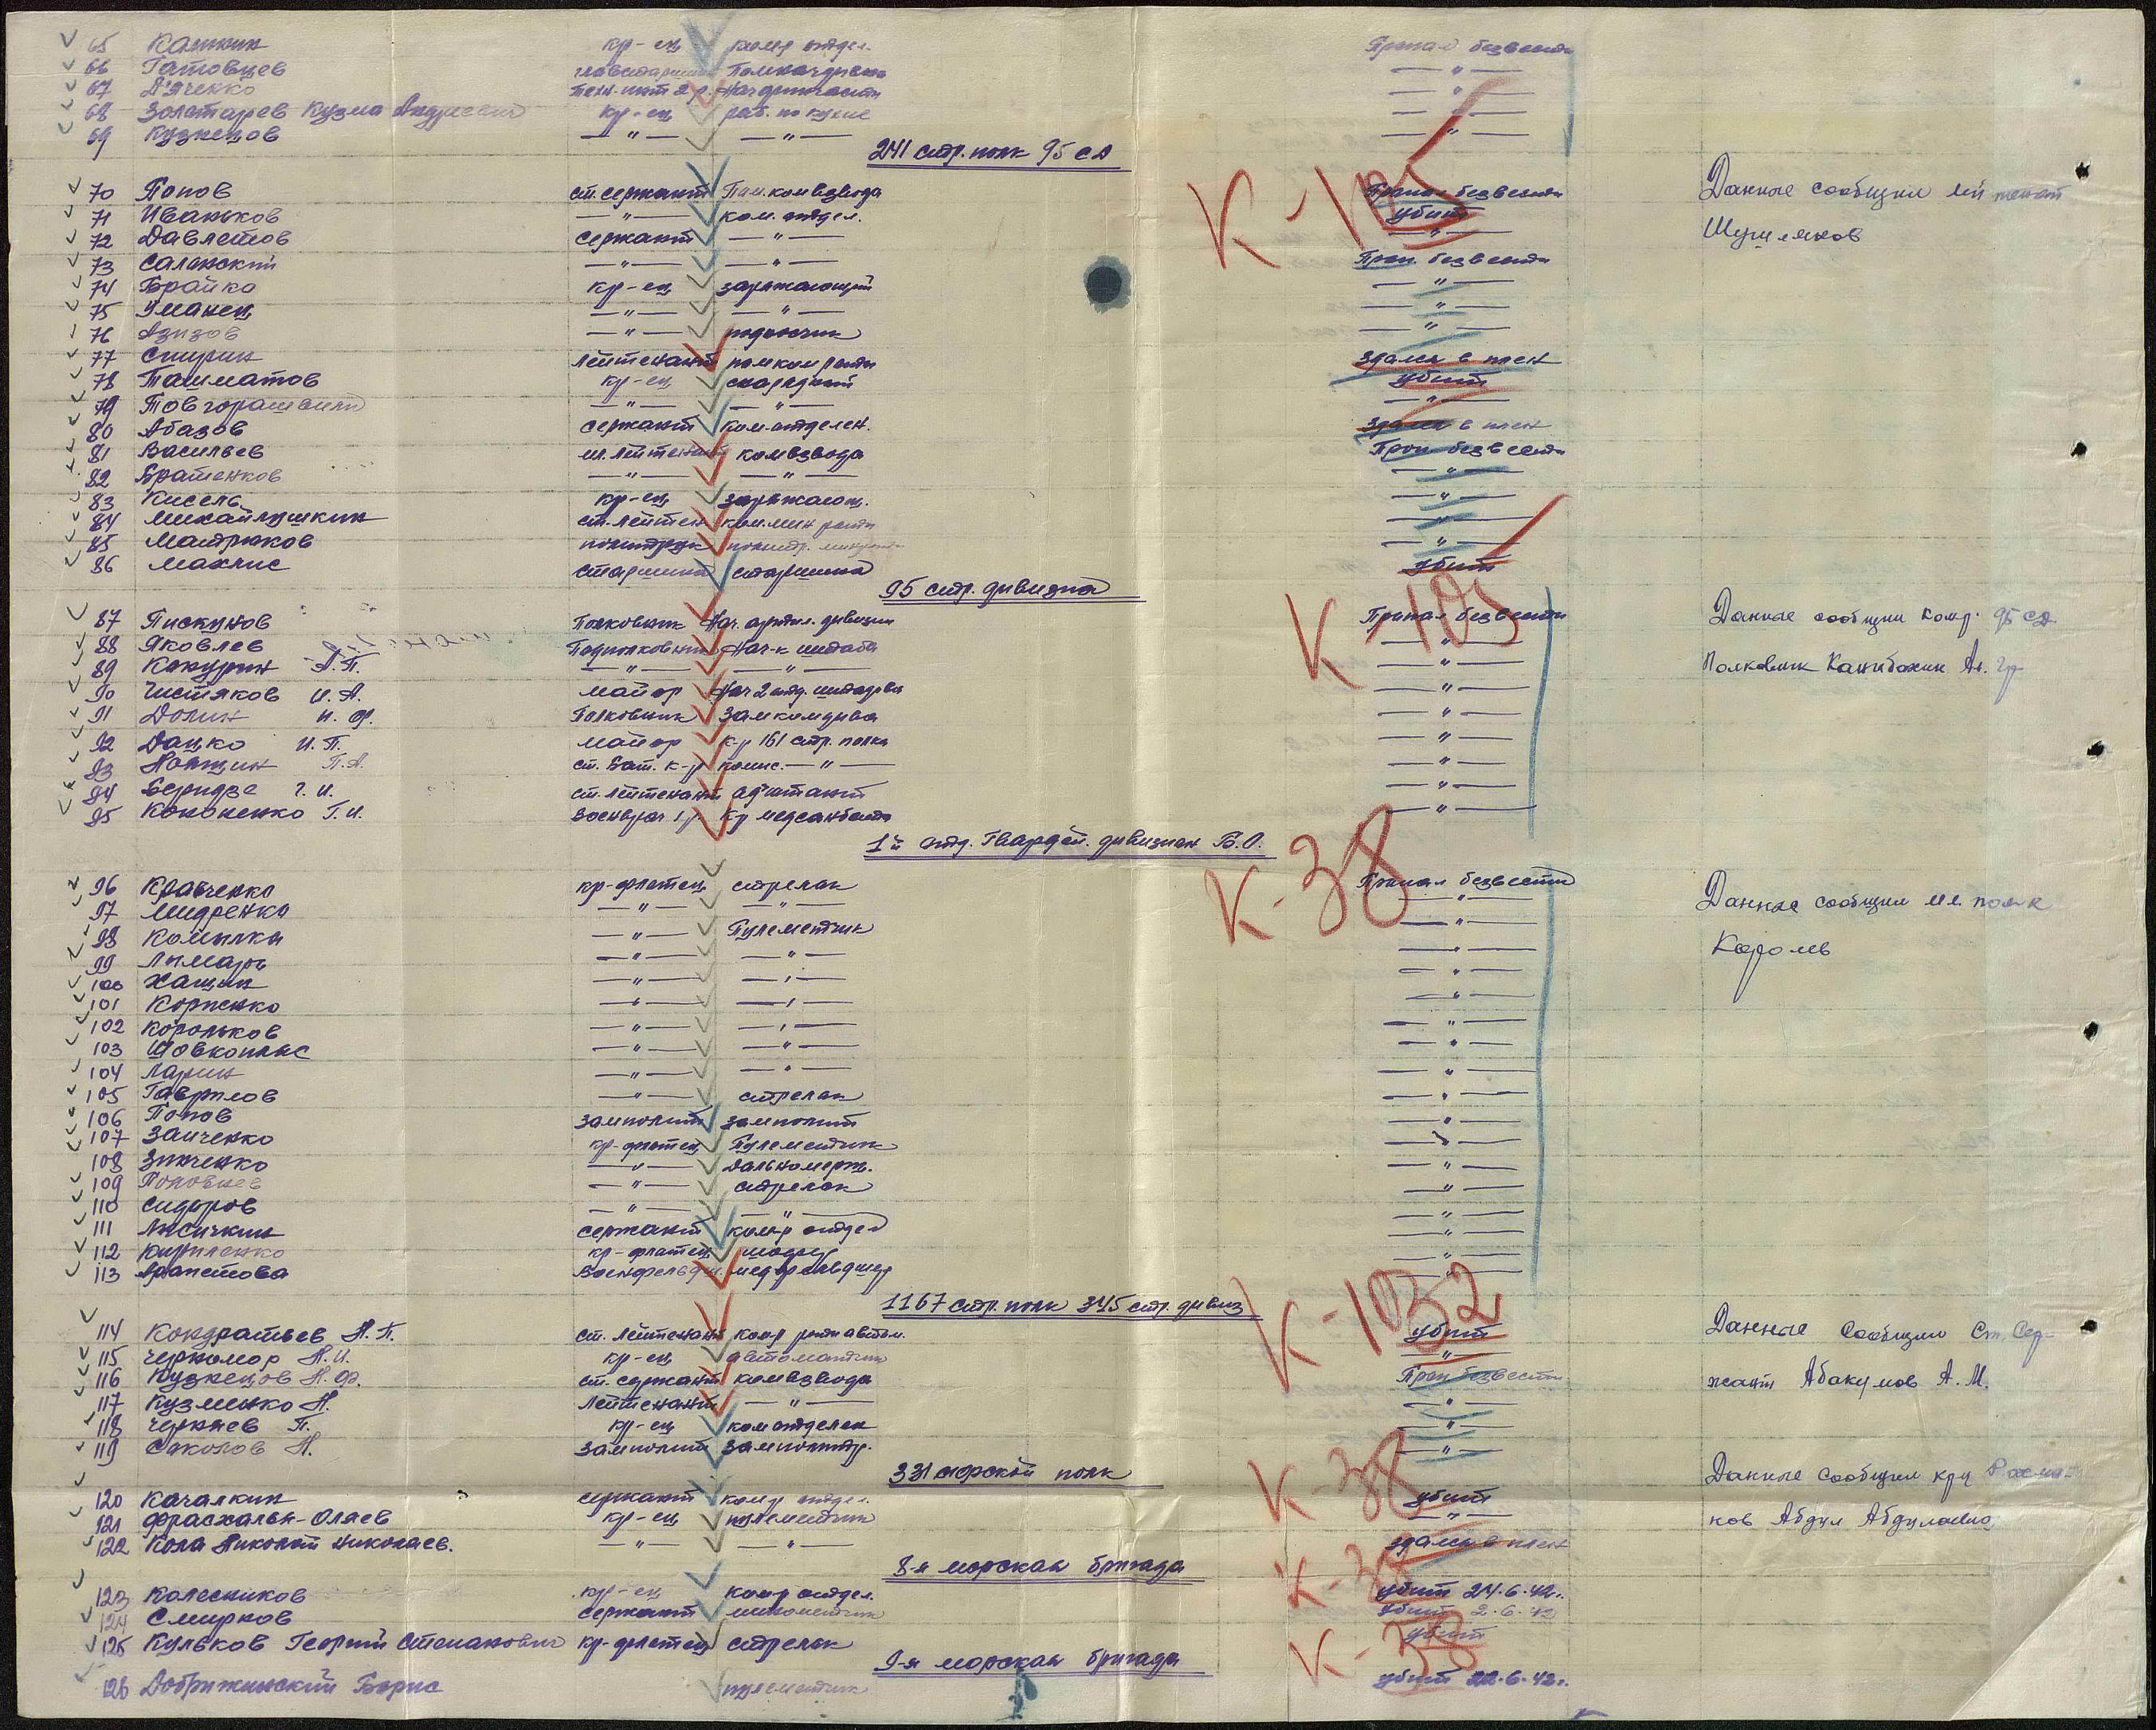 65 Кашкин кр-ец комр отдел. Пропал безвести
66 Гатовцев Помначдивиз — " —
67 Дяченко Техн-инт 2 р. — " —
68 Золотарев Кузма Андреевич кр-ец раб. по кухне — " —
69 Кузнецов — " — — " — — " —
241 стр. полк 95 СД
К-105
70 Попов ст. сержант Пом. комвзвода Пропал безвести Данные сообщил лейтенант
71 Иваньков — " — ком. отдел. убит
72 Давлетов сержант — " — — " — Шушляков
73 Саленский — " — — " — Проп. безвести
74 Брайко кр-ец заряжающий — " —
75 Уманец — " — — " — — " —
76 Азизов — " — подносчик — " —
77 Спирин лейтенант помком роты здался в плен
78 Ташматов кр-ец снарядный убит
79 Товгорашвили — " — — " — — " —
80 Абазов сержант ком. отделен. Здался в плен
81 Васильев мл. лейтенант комвзвода Проп безвести
82 Братенков — " — — " — — " —
83 Кисель кр-ец заряжающ. — " —
84 Михайлушкин ст. лейтен ком. мин роты — " —
85 Матрюков политрук политр. минроты — " —
86 Махлис старшина старшина убит
95 стр. дивизия
К-105
87 Пискунов Полковник Нач. артил. дивизии Пропал безвести Данные сообщил комр. 95 СД
88 Яковлев Подполковник Нач-к штаба — " —
89 Кокурин А.П. — " — — " — — " — Полковник
90 Чистяков И.А. майор Нач 2 отд. штадива — " —
91 Долин И.Ф. Полковник Замкомдива — " —
92 Дацко И.П. майор к-р 161 стр. полка — " —
93 П.А. ст. Бат. к-р комис. — " — — " —
94 Беридзе Г.И. ст. лейтенант адютант — " —
95 Кононенко Г.И. Военврач 1 р к-р медсанбата — " —
1й отд. Гвардей. дивизион Б.О.
К-38
96 Кравченко кр-флотец стрелок Пропал безвести Данные сообщил мл полк
97 Мидренка — " — — " — — " —
98 Комылка — " — Пулеметчик — " — Королев
99 Лымарь — " — — " — — " —
100 Хащин — " — — " — — " —
101 Корненко — " — — " — — " —
102 Корольков — " — — " — — " —
103 Шовкопляс — " — — " — — " —
104 Ларин — " — — " — — " —
105 Гаврилов — " — стрелок — " —
106 Попов замполит замполит — " —
107 Заиченко кр-флотец Пулеметчик — " —
108 Зинченко — " — Дальномерщ. — " —
109 Половнев — " — стрелок — " —
110 Сидоров — " — — " — — " —
111 Лисичкин сержант комр отдел — " —
112 Кириленко кр-флотец шофер — " —
113 Арапетова Военфельдш. медфельдшер — " —
1167 стр. полк 345 стр. дивиз
К-1032
114 Кондратьев Н.П. ст. лейтенант комр роты автом. убит Данные сообщил Ст. Сер-
115 Черномор Н.И. кр-ец автоматчик — " —
116 Кузнецов Н.Ф. ст. сержант комвзвода Проп безвести жант Абакумов А.М.
117 Кузменко Н. Лейтенант — " — — " —
118 Черняев П. кр-ец ком отделен — " —
119 Соколов Н. замполит замполитр. — " —
331 морской полк
К-38
Данные сообщил крц
120 Качалкин сержант комр отдел. убит
121 кр-ец пулеметчик — " — ков Абдул Абдулович
122 Кола Николай Николаев. — " — — " — здался в плен
8-я морская бригада
К-38
123 Колесников кр-ец комр отдел. убит 24.6.42г.
124 Смирнов сержант минометчик убит 2.6.42
125 Кульков Георгий Степанович кр-флотец стрелок убит
9-я морская бригада
К-38
126 Добрижинский Борис пулеметчик убит 22.6.42г.